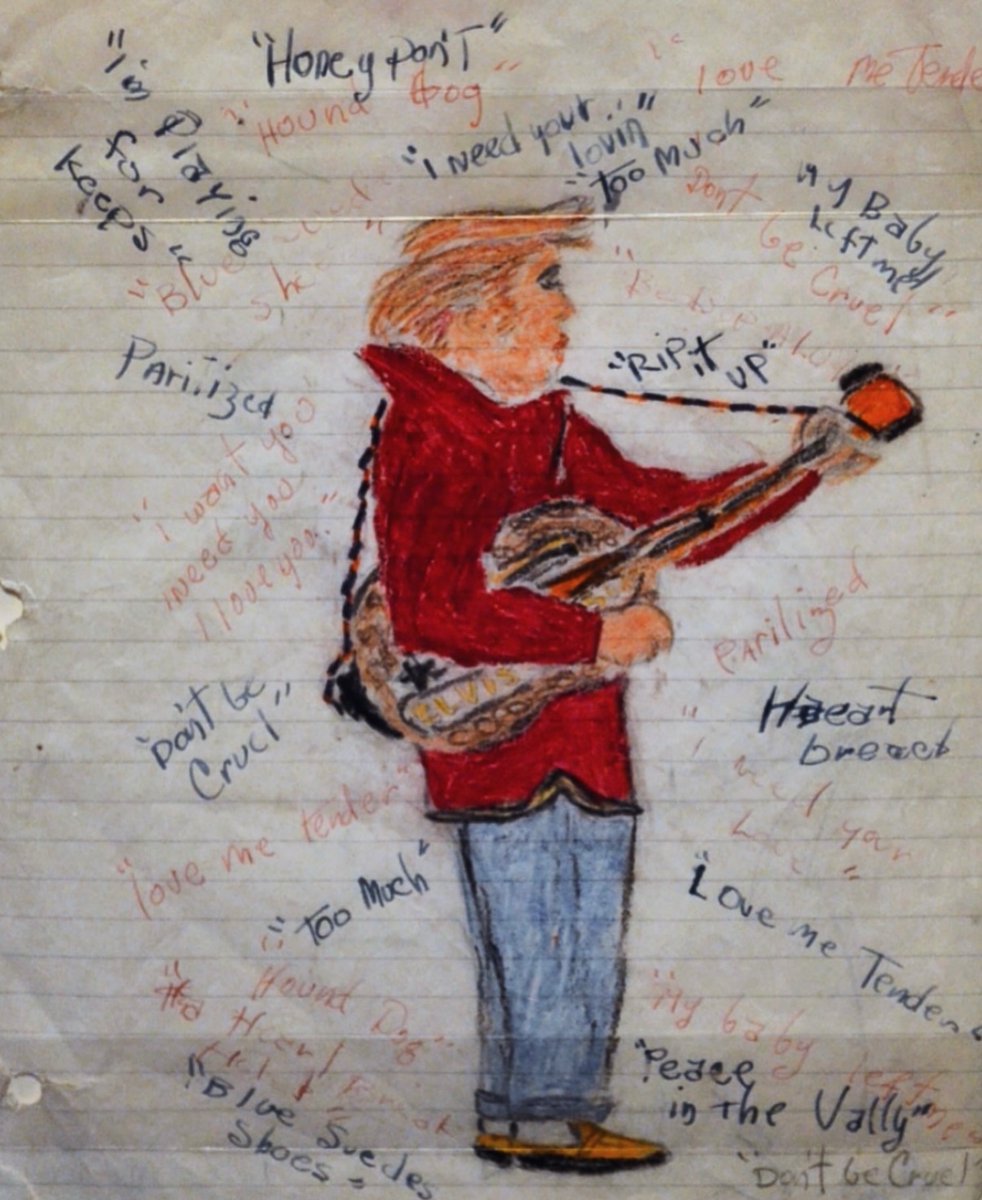 "Honey Don't"
"I'm Playing
for
Keeps"
"Hound Dog"
"I need your
lovin'"
"Too Much"
"love me Tende
Dont
be Cruel"
"My Baby
Left me"
"Blue
"RiP it
UP"
Paritized
"I want you
I need you
I love you."
Parilized
ELVIS
"Don't be
Cruel"
Heart
breack
"I need your
"love me tender"
"Too Much"
"Love me Tender
Hound Dog"
"My baby left me
"Peace
in the Vally"
"Blue Suedes
Shoes"
"Don't be Cruel"